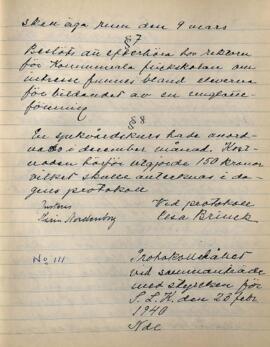 skall äga rum den 9 mars
§ 7
Beslöts att efterhöra hos rektorn
för Kommunala flickskolan om
intresse funnes bland eleverna
för bildandet av en
förening
§ 8
En sjukvårdskurs hade anord-
nats i december månad. Kost-
naden härför utgjorde 150 Kronor
vilket skulle antecknas i da-
gens protokoll
Justeras Vid protokollet
Elsa Brinck
No 111
Protokoll hållet
vid sammanträde
med styrelsen för
den 26 febr
1940